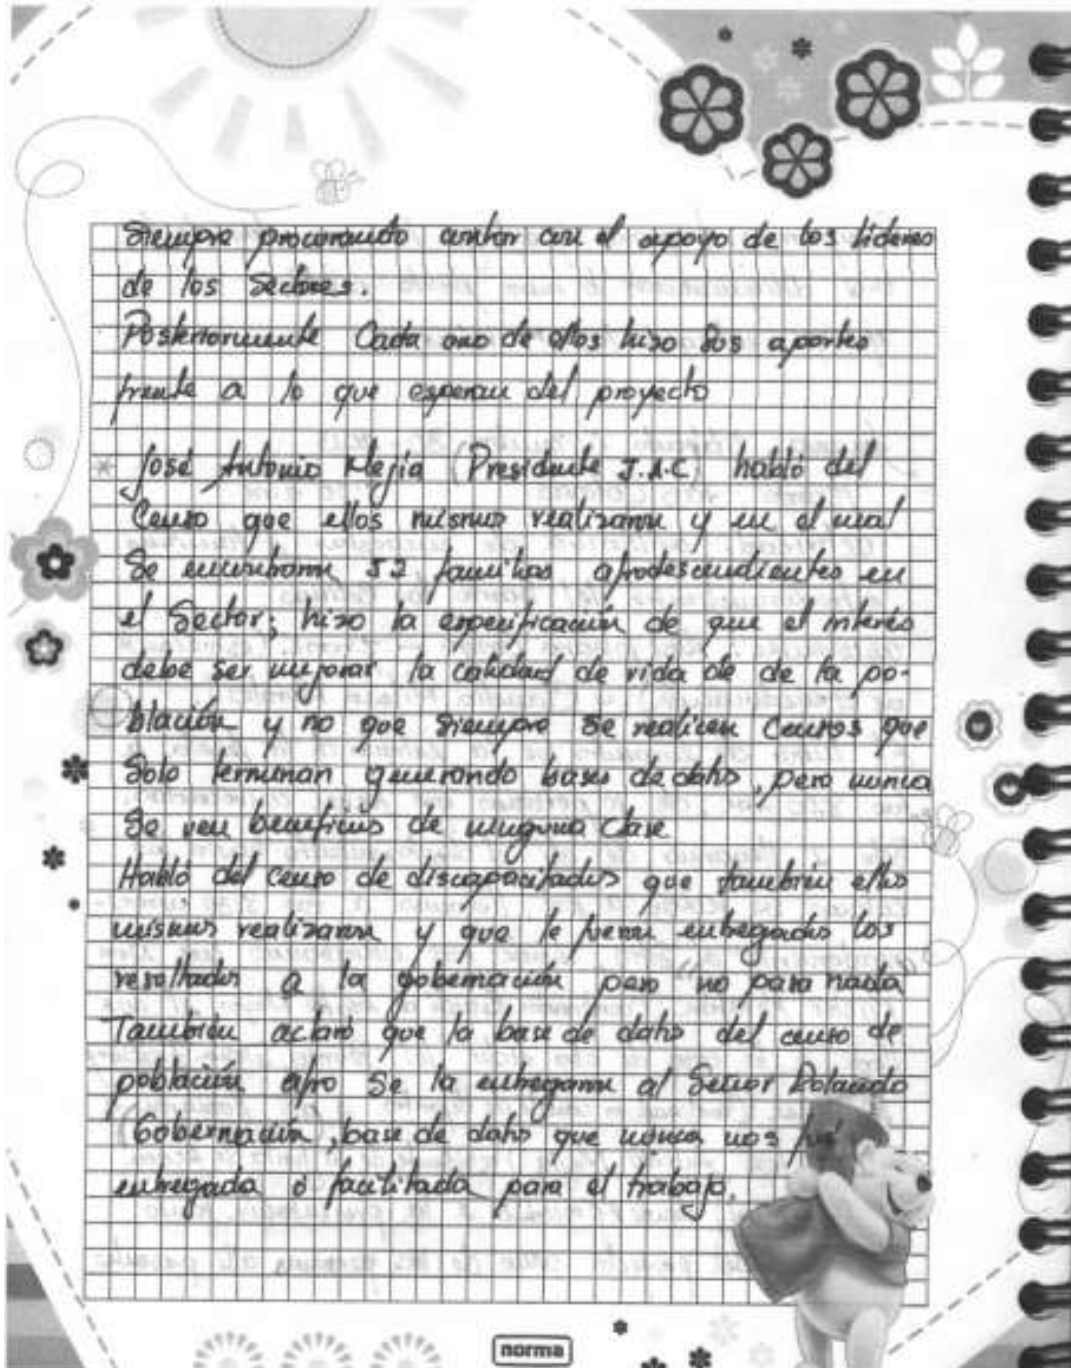 Siempre procurando contar con el apoyo de los líderes
de los Sectores.
Posteriormente Cada uno de ellos hizo sus aportes
frente a lo que esperan del proyecto
* José Antonio Mejía (Presidente J.A.C) habló del
Censo que ellos mismos realizaron y en el cual
Se encontraron 52 familias afrodescendientes en
el Sector; hizo la especificación de que el interés
debe ser mejorar la calidad de vida de de la po-
blación y no que siempre se realicen Censos que
Solo terminan generando bases de datos, pero nunca
Se ven beneficios de ninguna clase
Habló del censo de discapacitados que también ellos
mismos realizaron y que le fueron entregados los
resultados a la gobernación pero no paso nada
También aclaró que la base de datos del censo de
población afro Se la entregaron al Señor Rolando
(Gobernación, base de datos que nunca nos fue
entregada o facilitada para el trabajo.
norma